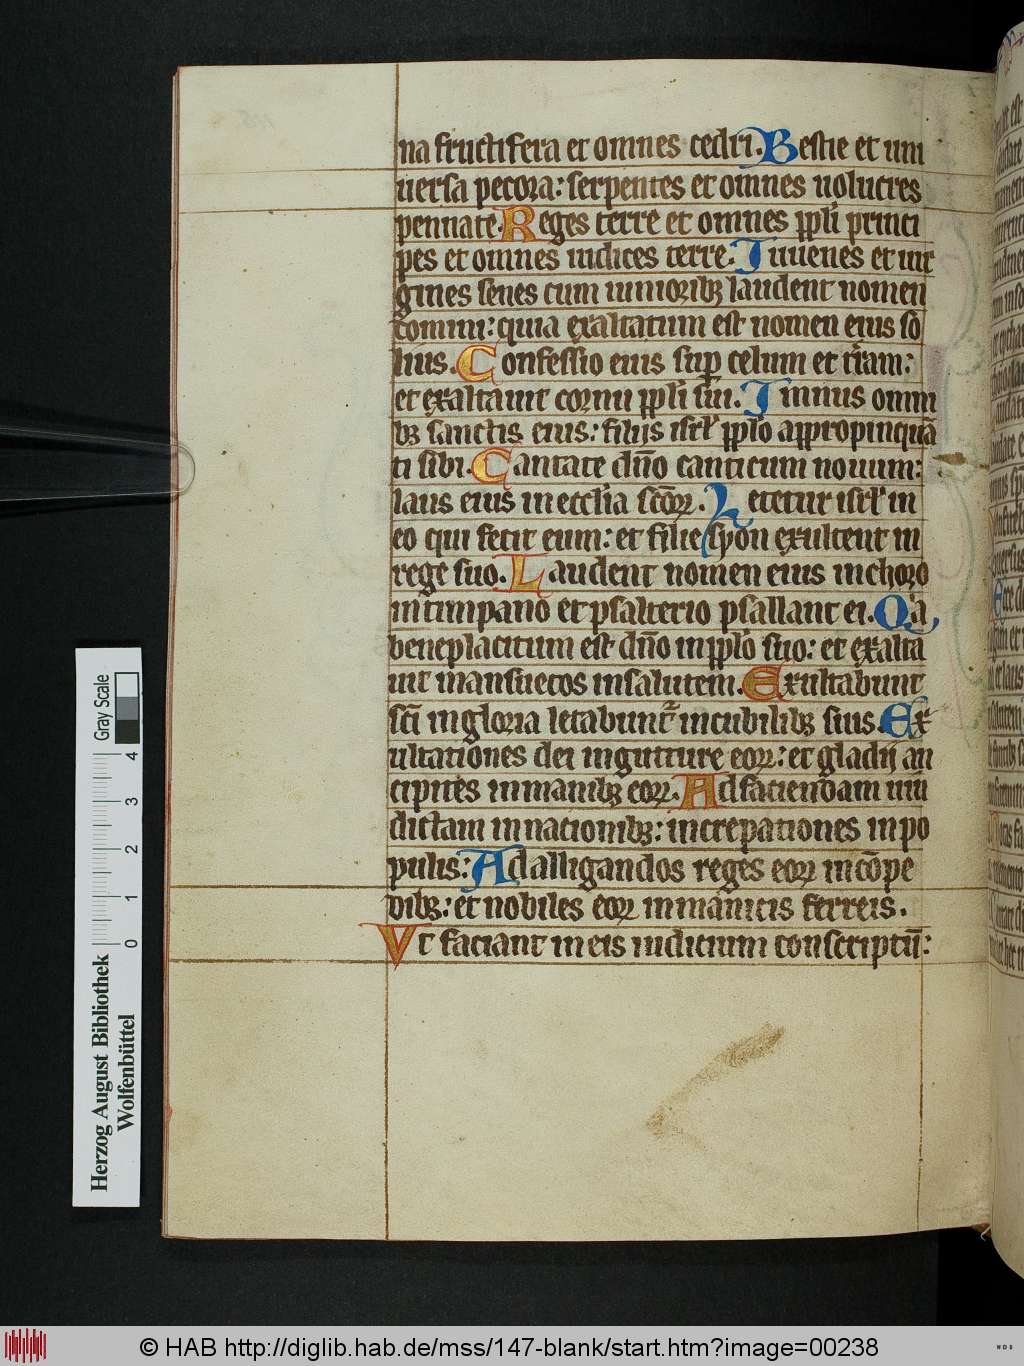 na fructifera et omnes cedri. Bestie et uni
uersa pecora: serpentes et omnes uolucres
pennate. Reges terre et omnes ppl̄i princi
pes et omnes iudices terre. Iuuenes et uir
gines senes cum iunioribꝫ laudent nomen
domini: quia exaltatum est nomen eius so
lius. Confessio eius sup̄ celum et t̄ram:
et exaltauit cornu ppl̄i sui. Imnus omni
bꝫ sanctis eius: filijs isrl̄ pplo appropinquā
ti sibi. Cantate dn̄o canticum nouum:
laus eius in eccl̄ia sc̄oꝝ. Letetur isrl̄ in
eo qui fecit eum: et filie syon exultent in
rege suo. Laudent nomen eius in choro
in timpano et psalterio psallant ei. Qa
beneplacitum est dn̄o in ppl̄o suo: et exalta
uit mansuetos in salutem. Exultabunt
sc̄i in gloria letabunt᷑ in cubilibꝫ suis. Ex
ultationes dei in gutture eoꝝ: et gladij an
cipites in manibꝫ eoꝝ. Ad faciendam uin
dictam in nationibꝫ: increpationes in po
pulis: Ad alligandos reges eoꝝ in cōpe
dibꝫ: et nobiles eoꝝ in manicis ferreis.
Vt faciant in eis iudicium conscriptū:
Gray Scale
4
3
2
1
0
Herzog August Bibliothek
Wolfenbüttel
© HAB http://diglib.hab.de/mss/147-blank/start.htm?image=00238